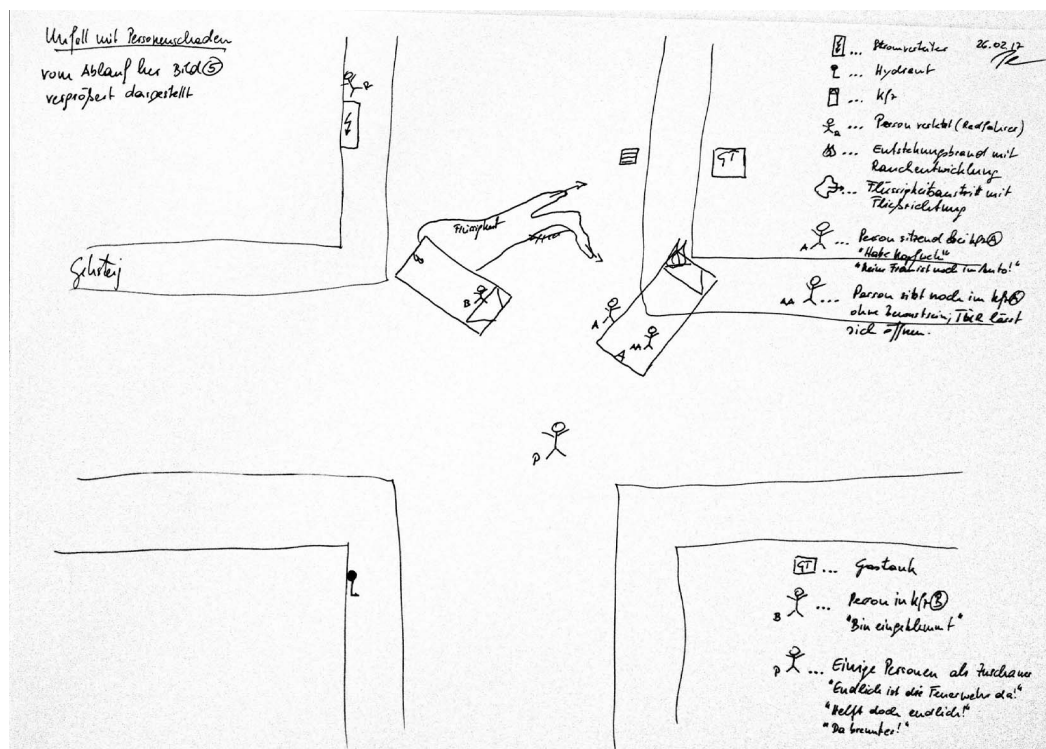 Unfall mit Personenschaden
vom Ablauf her Bild ⑤
vergrößert dargestellt
26.02.17
... Stromverteiler
... Hydrant
... Kfz
R ... Person verletzt (Radfahrer)
... Entstehungsbrand mit
Rauchentwicklung
... Flüssigkeitsaustritt mit
Fließrichtung
A ... Person sitzend bei Kfz Ⓐ
"Habe Kopfweh"
"Meine Frau ist noch im Auto!"
AA ... Person sitzt noch im Kfz
ohne Bewusstsein, TÜR lässt
sich öffnen.
R
GT
Flüssigkeit
Gehsteig
B
A
AA
A
P
GT ... Gastank
B ... Person in Kfz Ⓑ
"Bin eingeklemmt"
P ... Einige Personen als Zuschauer
"Endlich ist die Feuerwehr da!"
"Helft doch endlich!"
"Da brennt es!"